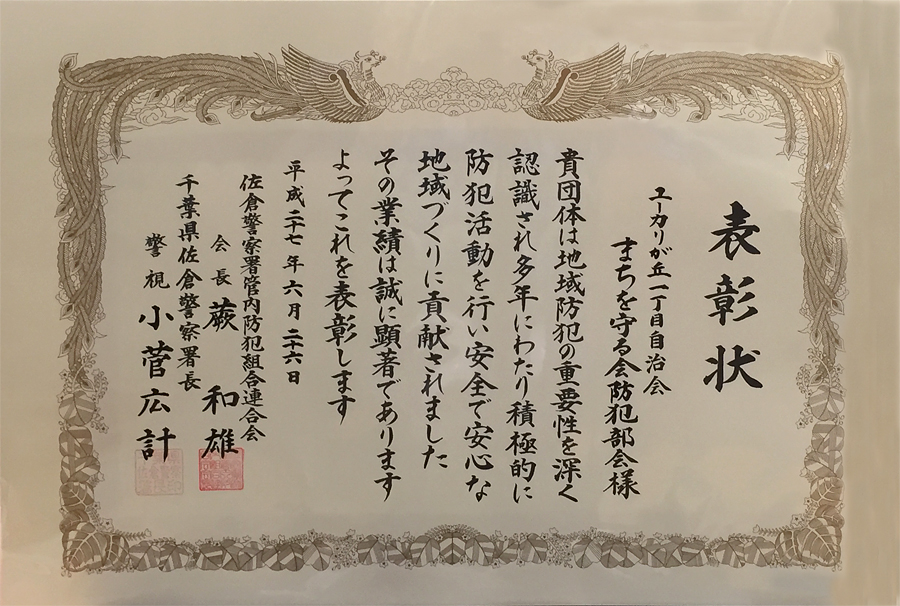 表彰状
ユーカリが丘一丁目自治会
まちを守る会防犯部会様
貴団体は地域防犯の重要性を深く
認識され多年にわたり積極的に
防犯活動を行い安全で安心な
地域づくりに貢献されました
その業績は誠に顕著であります
よってこれを表彰します
平成二十七年六月二十六日
佐倉警察署管内防犯組合連合会
会長 蕨和雄
千葉県佐倉警察署長
警視 小菅広計